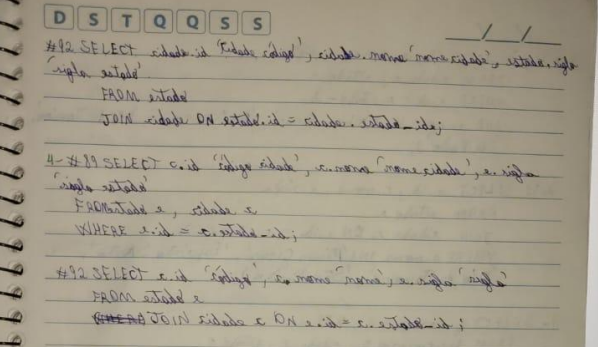 D S T Q Q S S
#92 SELECT cidade.id "código cidade", cidade.nome "nome cidade", estado.sigla
"sigla estado"
FROM estado
JOIN cidade ON estado.id = cidade.estado_id;
4-#89 SELECT c.id "código cidade", c.nome "nome cidade", e.sigla
"sigla estado"
FROM estado e, cidade c
WHERE e.id = c.estado_id;
#92 SELECT c.id "código", c.nome "nome", e.sigla "sigla"
FROM estado e
JOIN cidade c ON e.id = c.estado_id;